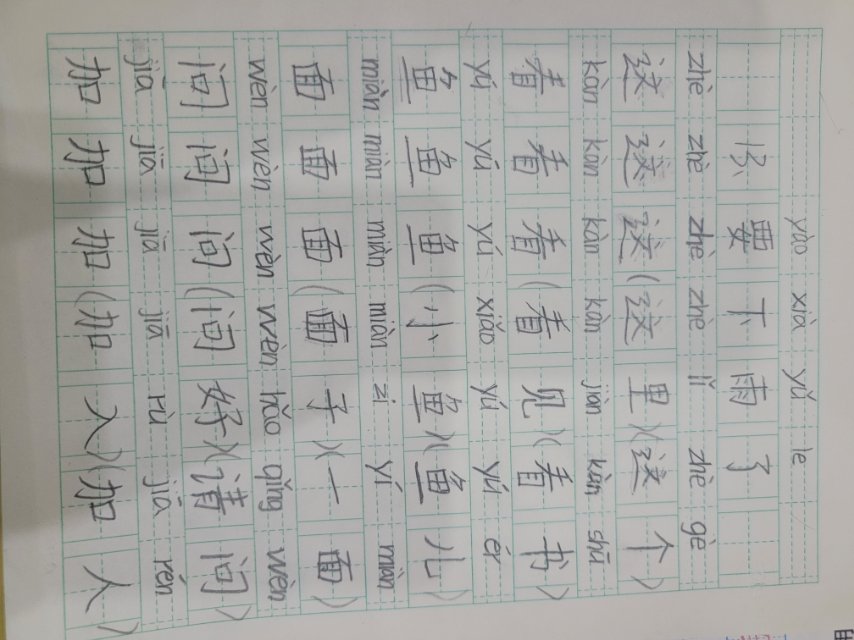 yào xià yǔ le
13、要下雨了
zhè zhè zhè zhè lǐ zhè gè
这 这 这(这 里)(这 个)
kàn kàn kàn kàn jiàn kàn shū
看 看 看(看 见)(看 书)
yú yú yú xiǎo yú yú ér
鱼 鱼 鱼(小 鱼)(鱼 儿)
miàn miàn miàn miàn zi yí miàn
面 面 面(面 子)(一 面)
wèn wèn wèn wèn hǎo qǐng wèn
问 问 问(问 好)(请 问)
jiā jiā jiā jiā rù jiā rén
加 加 加(加 入)(加 人)